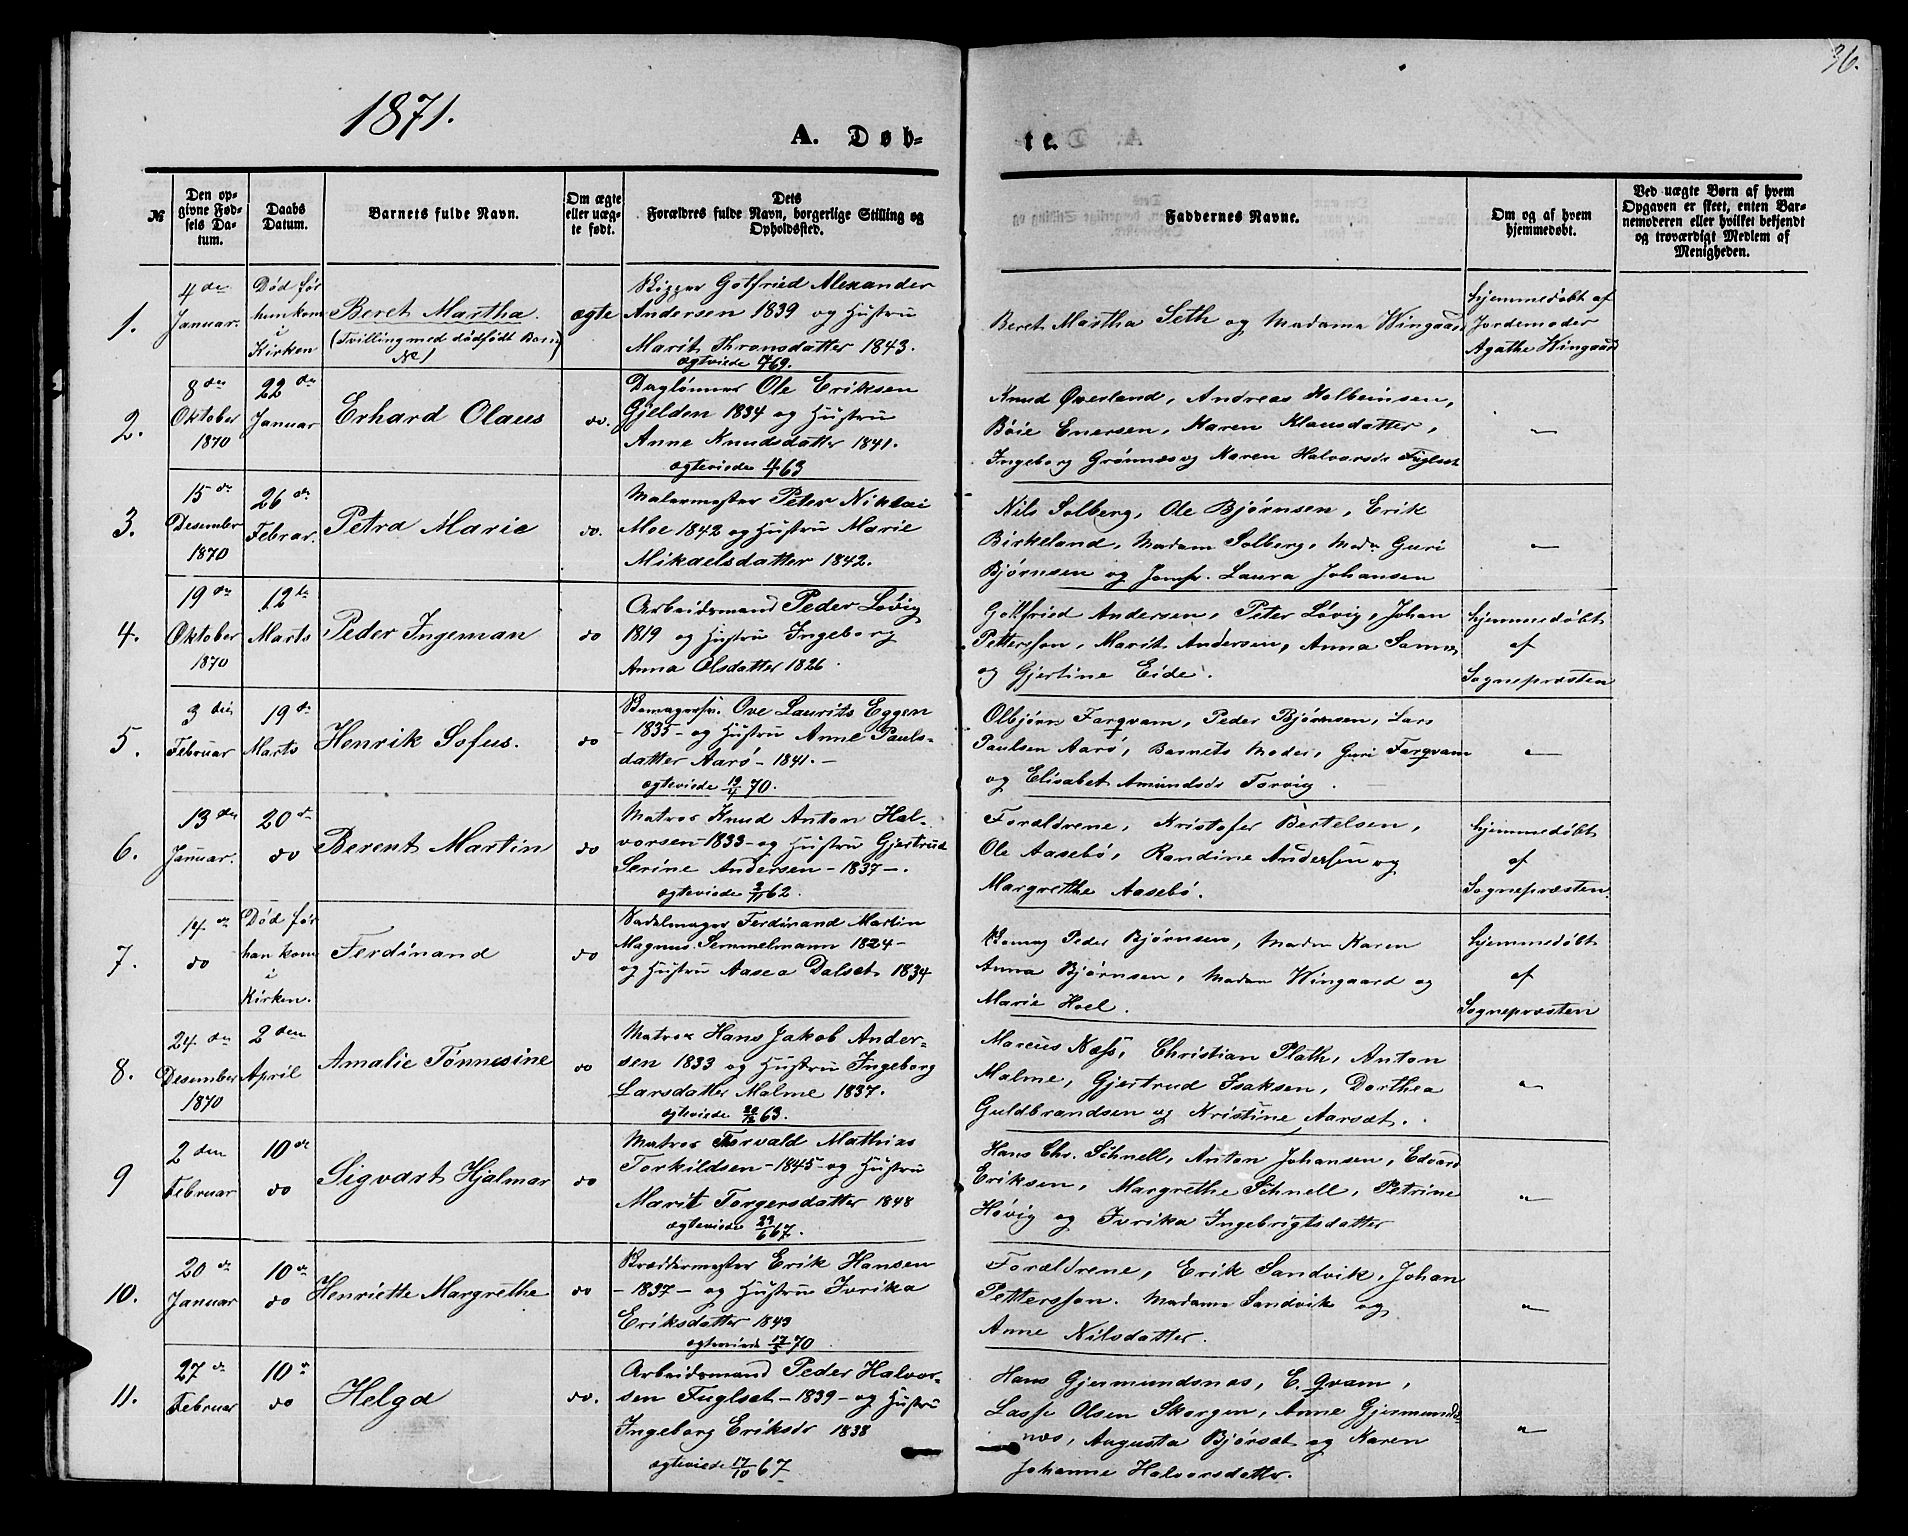 36.
1871.
A. Døb-
te.
№
Den op-
givne Fød-
sels Da-
tum.
Daabs
Datum.
Barnets fulde Navn.
Om ægte
eller uæg-
te født.
Dets
Forældres fulde Navn, borgerlige Stilling og
Opholdssted.
Faddernes Navne.
Om og af hvem
hjemmedøbt.
Ved uægte Børn af hvem
Opgaven er skeet, enten Bar-
nemoderen eller hvilket bekjendt
og troværdigt Medlem af
Menigheden.
1.
4de
Januar.
Død før
hun kom
i
Kirken
Beret Martha.
(Tvilling med dødfødt Barn
No 1
ægte
Skipper Gotfried Alexander
Andersen 1839 og Hustru
Marit Thronsdatter 1843.
ægteviede 69.
Beret Martha Seth og Madame Wingaard
hjemmedøbt af
Jordemoder
Agathe Wingaard
2.
8de
Oktober
1870
22de
Januar
Erhard Olaus
do.
Daglønner Ole Eriksen
Gjelden 1834 og Hustru
Anne Knudsdatter 1841.
ægteviede 63
Knud Øverland, Andreas Kolbeinsen,
Boie Enersen, Maren Klausdatter,
Ingeborg Grønnes og Karen Halvorsdr Fuglset
"
3.
15de
Desember
1870
26de
Februar.
Petra Marie
do.
Malermester Peter Nikolai
Moe 1842 og Hustru Marie
Mikaelsdatter 1842.
Nils Solberg, Ole Bjørnsen, Erik
Birkeland, Madam Solberg, Madm Guri
Bjørnsen og Jomfr. Laura Johansen
"
4.
19de
Oktober
1870
12te
Marts
Peder Ingeman
do
Arbeidsmand Peder Løvig
1819 og Hustru Ingeborg
Anna Olsdatter 1826.
Gotfried Andersen, Peter Løvig, Johan
Pettersson, Marit Andersen, Anna Sannes
og Gjertine Eide.
hjemmedøbt
af
Sognepræsten
5.
3die
Februar
19de
Marts
Henrik Sofus.
do
Skomagersv. Ove Laurits Eggen
- 1835 - og Hustru Anne Pauls-
datter Aarø - 1841. -
ægteviede 19/4 70.
Olbjørn Fargvam, Peder Bjørnsen, Lars
Paulsen Aarø, Barnets Moder, Guri Fargvam
og Elisabet Amundsdr Torvig.
"
6.
13de
Januar.
20de
do
Berent Martin
do
Matros Knud Anton Hal-
vorsen - 1833 - og Hustru Gjertrud
Serine Andersen - 1837 -.
ægteviede 62.
Forældrene, Kristofer Bertelsen,
Ole Aasebø, Randine Anderssen og
Margrethe Aasebø.
hjemmedøbt
af
Sognepræsten.
7.
14de
do
Død før
han kom
i
Kirken.
Ferdinand
do
Sadelmager Ferdinand Martin
Magnus Semmelmann 1824 -
og Hustru Aasea Dalset 1834
Skomag Peder Bjørnsen, Madm Karen
Anna Bjørnsen, Madam Wingaard og
Marie Hoel.
hjemmedøbt
af
Sognepræsten
8.
24de
Desember
1870
2den
April
Amalie Tønnesine
do
Matros Hans Jakob Ander-
sen 1833 og Hustru Ingeborg
Larsdatter Malme 1837.
ægteviede 63.
Marcus Næss, Christian Plath, Anton
Malme, Gjertrud Isaksen, Dorthea
Guldbrandsen og Kristine Aarsæt.
"
9
2den
Februar
10de
do
Sigvart Hjalmar
do
Matros Torvald Mathias
Torkildsen - 1845 - og Hustru
Marit Torgersdatter 1848
ægteviede 29/6 67.
Hans Chr. Schnell, Anton Johansen, Edvard
Eriksen, Margrethe Schnell, Petrine
Høvig og Ivrika Ingebrigtsdatter
"
10.
20de
Januar
10de
do
Henriette Margrethe
do
Skræddermester Erik Hansen
- 1837 - og Hustru Ivrika
Eriksdatter 1843
ægteviede 17/3 70
Forældrene, Erik Sandvik, Johan
Pettersson. Madame Sandvik og
Anne Nilsdatter.
"
11.
27de
Februar
10de
do
Helga
do.
Arbeidsmand Peder Halvor-
sen Fuglset - 1839 - og Hustru
Ingeborg Eriksdr 1838
ægteviede 17/10 67
Hans Gjermundsnæs, E. Qvam,
Lasse Olsen Skorgen, Anne Gjermunds-
næs, Augusta Bjørsæt og Karen
Johanne Halvorsdatter.
"